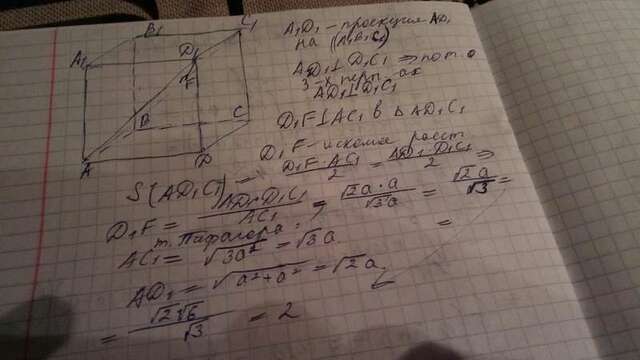 B₁ C₁
A₁ D₁
F
B C
A D
A₁D₁ - проекция AD₁
на (A₁B₁C₁)
A₁D₁ ⊥ D₁C₁ ⇒ по т. о
3-х перп-ах
AD₁ ⊥ D₁C₁
D₁F ⊥ AC₁ в △ AD₁C₁
D₁F - искомое расст
S(AD₁C₁) = D₁F · AC₁ / 2 = AD₁ · D₁C₁ / 2 ⇒
D₁F = AD₁ · D₁C₁ / AC₁ = √2a · a / √3a = √2a / √3 =
т. Пифагора:
AC₁ = √3a² = √3a =
AD₁ = √a² + a² = √2a
= √2 · √6 / √3 = 2